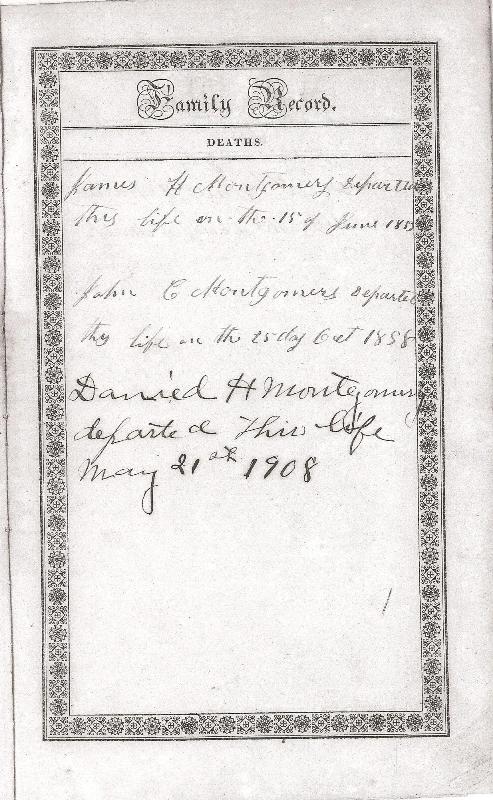 Family Record.
DEATHS.
James H Montgomery departed
this life on the 15 of June
John C Montgomery departed
this life on the 25 day Oct 1858
Daniel H Montgomery
departed This life
May 21st 1908